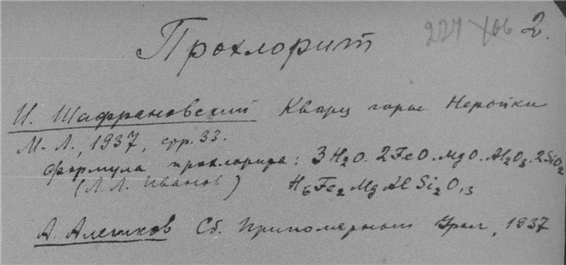 227 406 2.
Прохлорит
И. Шафрановский Кварц горы Неройки
М. Л., 1937, стр. 33.
формула прохлорида: 3H₂O. 2FeO. MgO. Al₂O₃. 2SiO₂
(Л. Л. Иванов) H₆Fe₂MgAlSi₂O₁₃
А. Алешков Сб. Приполярный Урал, 1937